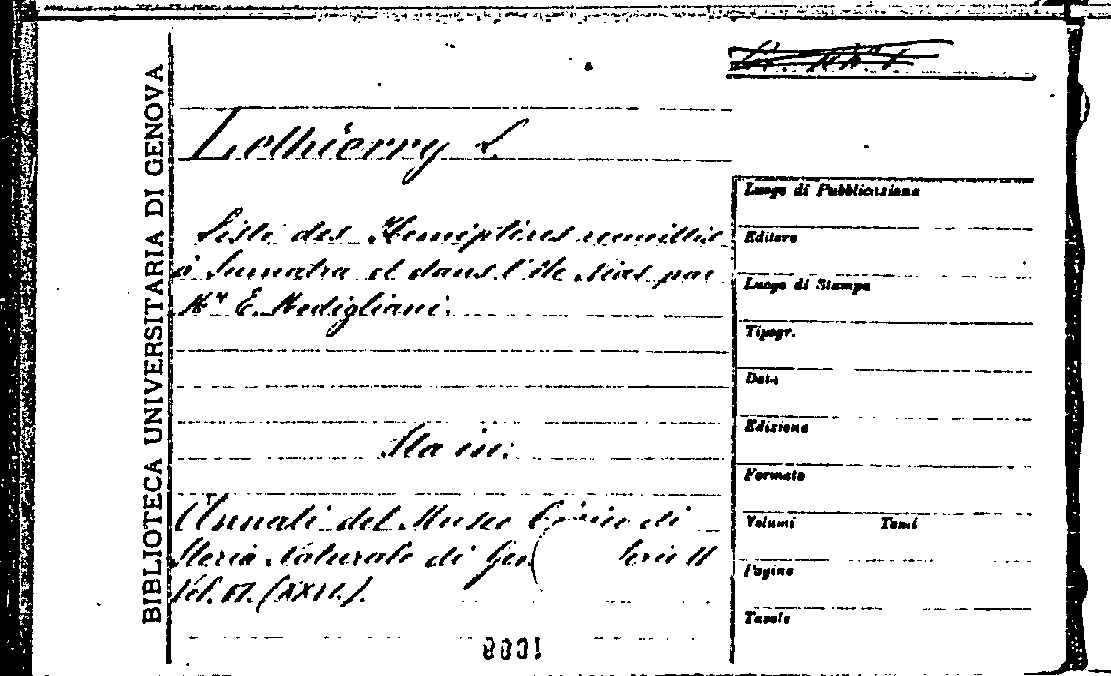 BIBLIOTECA UNIVERSITARIA DI GENOVA
Lethierry L.
Liste des Hémiptères recueillis
à Sumatra et dans l'île Nias par
Mr E. Modigliani.
Sta in:
Annali del Museo Civico di
Storia Naturale di Gen Serie II
Vol. VI. (XXVI.).
Luogo di Pubblicazione
Editore
Luogo di Stampa
Tipogr.
Data
Edizione
Formato
Volumi Tomi
Pagine
Tavole